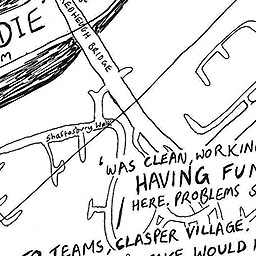 DIE'
REDHEUGH BRIDGE
Shaftesbury Walk
'WAS CLEAN, WORKIN
HAVING FUN
HERE, PROBLEMS S
TEAMS, CLASPER VILLAGE.
WOULD